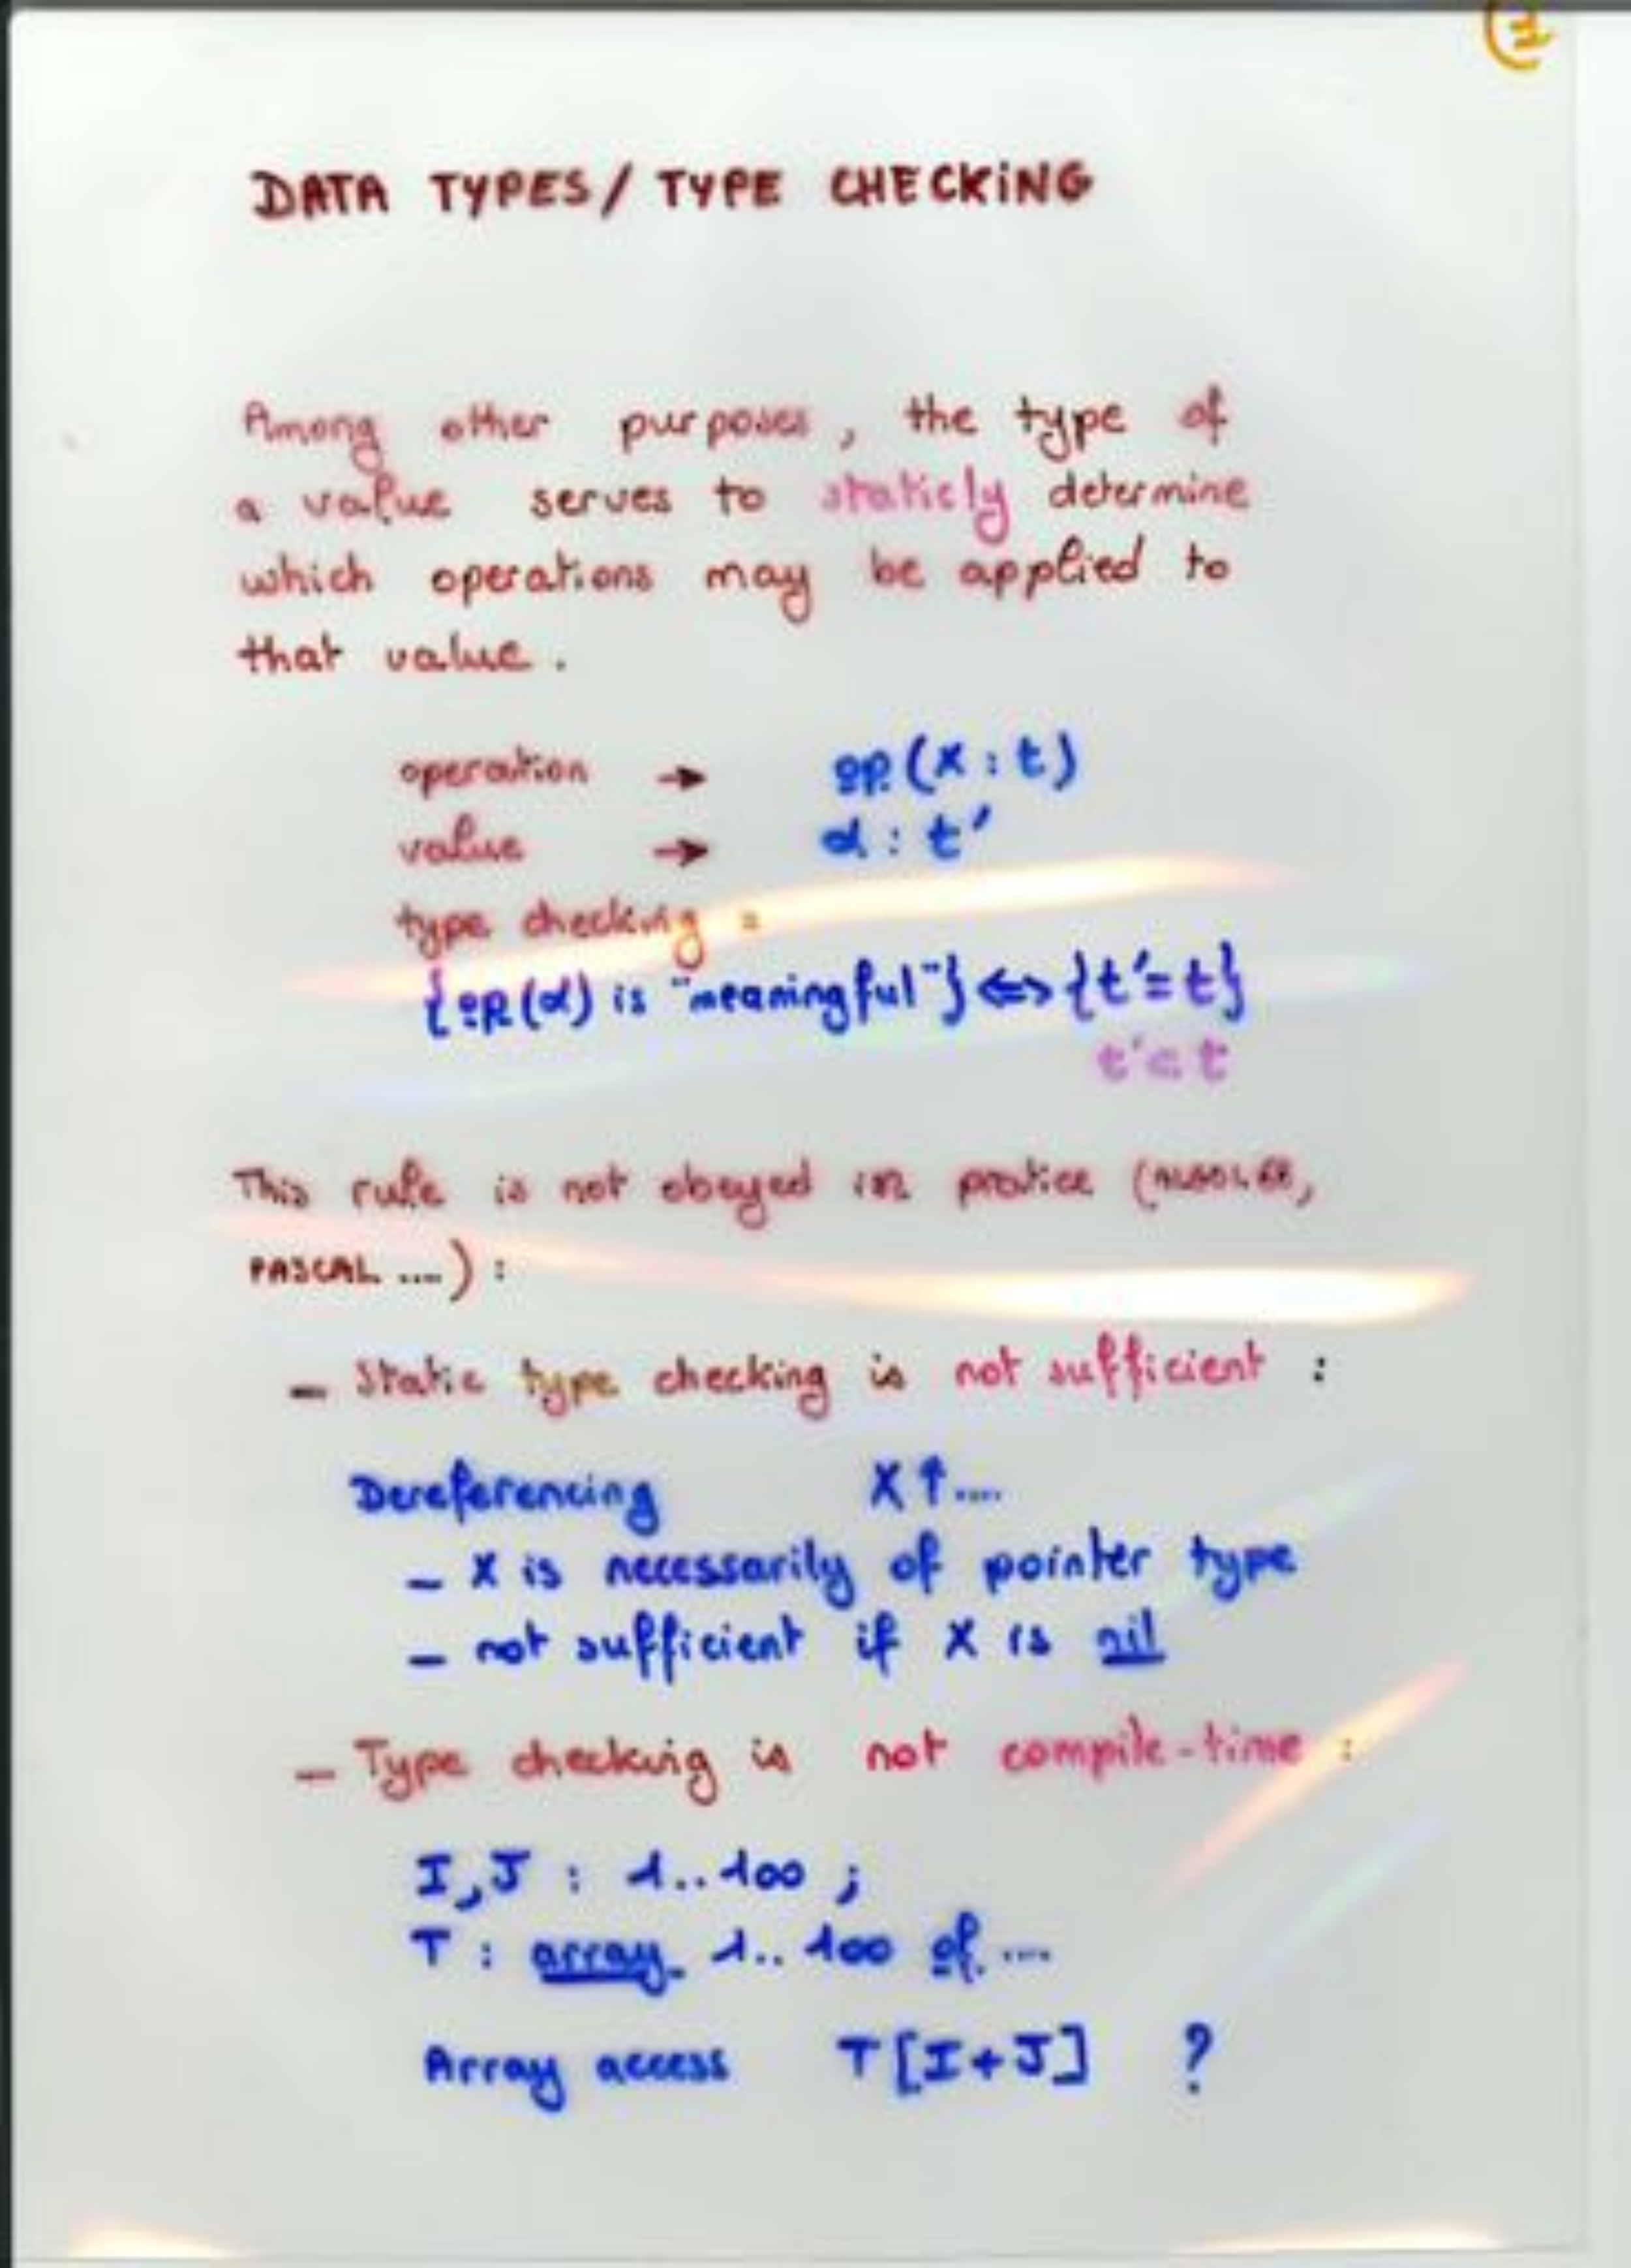 DATA TYPES / TYPE CHECKING
Among other purposes, the type of
a value serves to staticly determine
which operations may be applied to
that value.
operation → op (X : t)
value → α : t'
type checking :
{op (α) is "meaningful"} <=> {t' = t}
t' ⊂ t
This rule is not obeyed in pratice (ALGOL 68,
PASCAL ....) :
- Static type checking is not sufficient :
Dereferencing X↑....
- X is necessarily of pointer type
- not sufficient if X is nil
- Type checking is not compile-time :
I, J : 1..100 ;
T : array 1..100 of ....
Array access T [I+J] ?